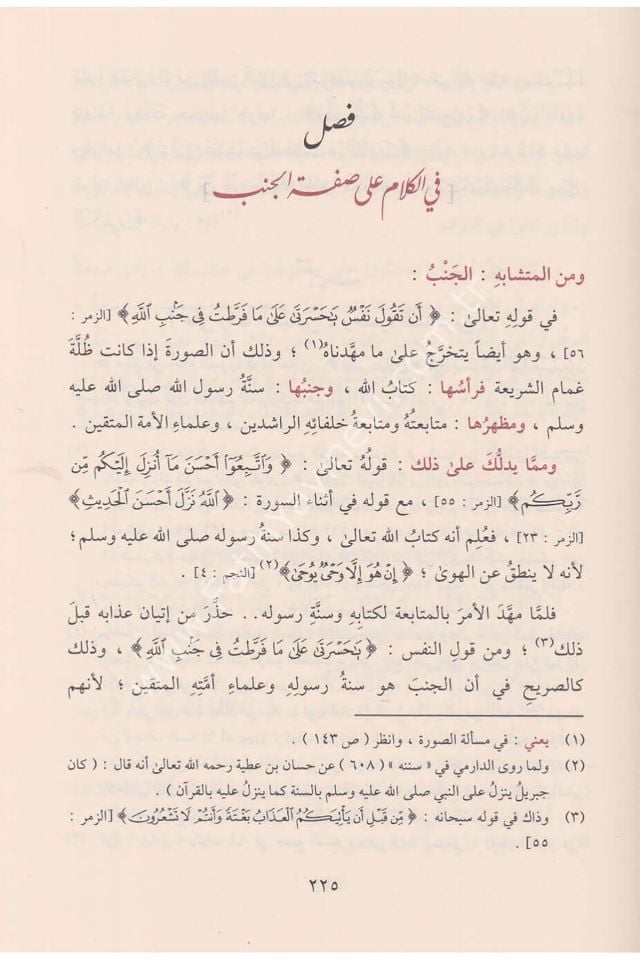 فصل
[في الكلام على صفة الجنب]
ومن المتشابهِ : الجَنْبُ :
في قولِهِ تعالىٰ : ﴿ أَن تَقُولَ نَفْسٌ يَٰحَسْرَتَىٰ عَلَىٰ مَا فَرَّطتُ فِى جَنۢبِ ٱللَّهِ ﴾ [الزمر :
٥٦] ، وهو أيضاً يتخرَّجُ علىٰ ما مهَّدناهُ(١) ؛ وذلك أن الصورةَ إذا كانت ظُلَّةَ
غمام الشريعة فرأسُها : كتابُ الله ، وجنبُها : سنَّةُ رسول الله صلى الله عليه
وسلم ، ومظهرُها : متابعتُهُ ومتابعةُ خلفائِهِ الراشدين ، وعلماءِ الأمة المتقين .
وممَّا يدلُّكَ علىٰ ذلك : قولُهُ تعالىٰ : ﴿ وَٱتَّبِعُوٓا۟ أَحْسَنَ مَآ أُنزِلَ إِلَيْكُم مِّن
رَّبِّكُم ﴾ [الزمر : ٥٥] ، مع قوله في أثناء السورة : ﴿ ٱللَّهُ نَزَّلَ أَحْسَنَ ٱلْحَدِيثِ ﴾
[الزمر : ٢٣] ، فعُلِم أنه كتابُ الله تعالىٰ ، وكذا سنةُ رسوله صلى الله عليه وسلم؛
لأنه لا ينطقُ عن الهوىٰ ؛ ﴿ إِنْ هُوَ إِلَّا وَحْىٌ يُوحَىٰ ﴾(٢) [النجم : ٤] .
فلمَّا مهَّدَ الأمرَ بالمتابعة لكتابِهِ وسنَّةِ رسوله.. حذَّرَ من إتيان عذابه قبلَ
ذلك(٣) ؛ ومن قولِ النفس : ﴿ يَٰحَسْرَتَىٰ عَلَىٰ مَا فَرَّطتُ فِى جَنۢبِ ٱللَّهِ ﴾ ، وذلك
كالصريحِ في أن الجنبَ هو سنةُ رسولِهِ وعلماءِ أمَّتِهِ المتقين ؛ لأنهم
(١) يعني : في مسألة الصورة ، وانظر ( ص ١٤٣ ) .
(٢) ولما روى الدارمي في « سننه » ( ٦٠٨ ) عن حسان بن عطية رحمه الله تعالىٰ أنه قال : ( كان
جبريلُ ينزلُ على النبي صلى الله عليه وسلم بالسنة كما ينزلُ عليه بالقرآن ) .
(٣) وذاك في قوله سبحانه : ﴿ مِّن قَبْلِ أَن يَأْتِيَكُمُ ٱلْعَذَابُ بَغْتَةً وَأَنتُمْ لَا تَشْعُرُونَ ﴾ [الزمر :
٥٥] .
٢٢٥